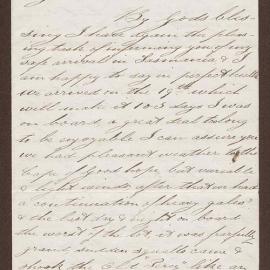 By Gods bles-
sing I have again the pleas-
ing task of informing you of my
safe arrival in Tasmania & I
am happy to say in perfect health
we arrived on the 19th which
will make it 103 days I was
on board, a great deal to long
to be enjoyable I can assure you
we had pleasant weather to the
Cape of Good hope but variable
& light winds after that we had
a continuation of heavy gales
& the last day & night on board
the worst of the lot it was perfectly
grand sudden squalls came &
struck the like an